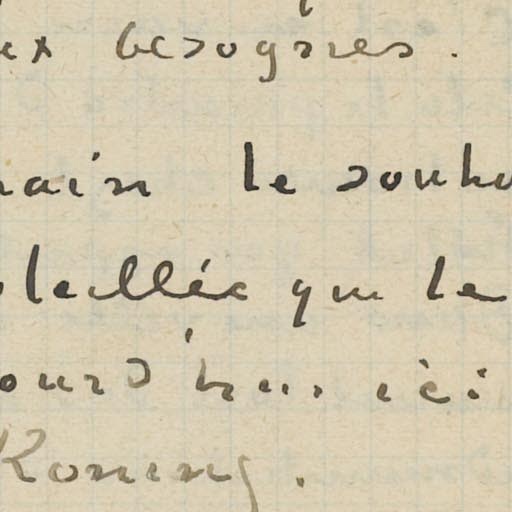 ux besognes.
main le souha
oleillée que le
ourd'hui ici
Koning.